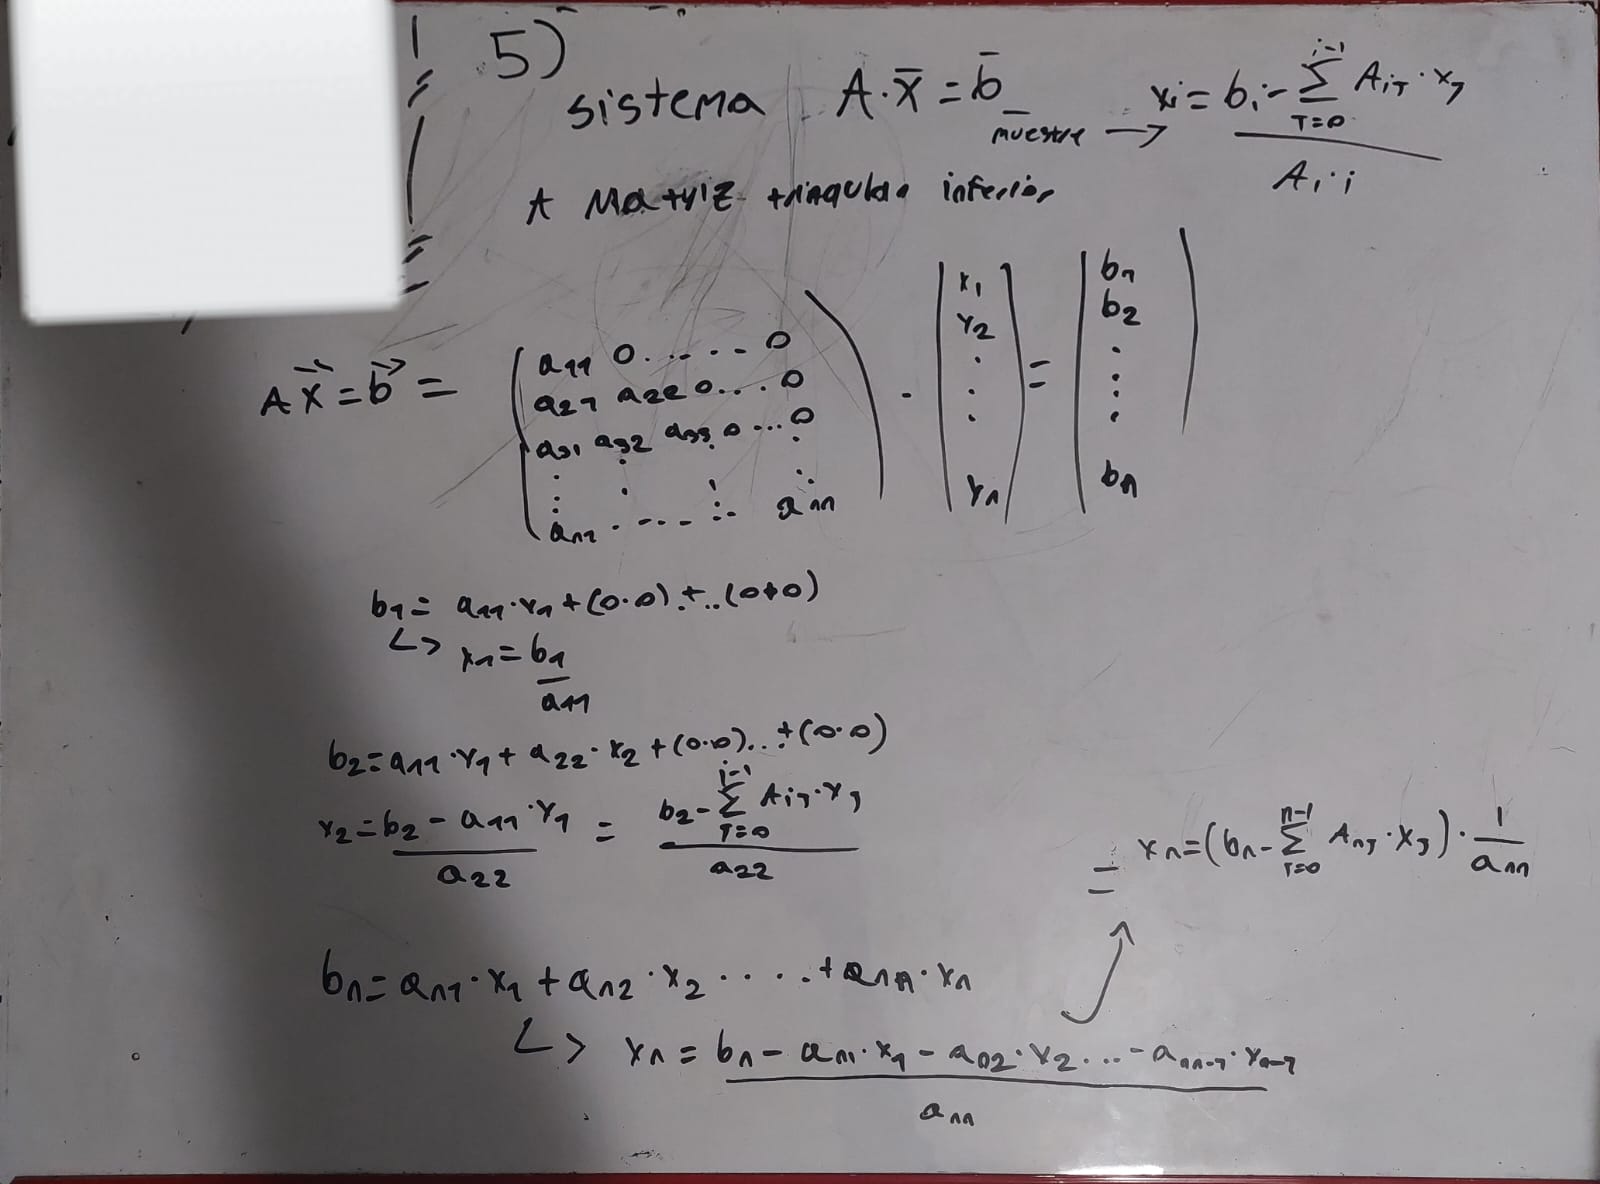 5)
sistema A·x̄ = b̄
muestre → xi = bi - Σ(T=0, i-1) AiJ · xJ / Ai,i
A Matriz triangular inferior
A x⃗ = b⃗ = ( a11 0 . . . . . 0 ) · ( x1 ) = ( b1 )
a21 a22 0 . . . 0 x2 b2
a31 a32 a33 0 ... 0 . .
. . . . . .
an1 . . . . . . . ann xn bn
b1 = a11·x1 + (0·0) + .. (0+0)
↳ x1 = b1 / a11
b2 = a11·x1 + a22·x2 + (0·0) .. + (0·0)
x2 = b2 - a11·x1 / a22 = b2 - Σ(J=0, i-1) AiJ·xJ / a22
= xn = (bn - Σ(J=0, n-1) AnJ·xJ) · 1 / ann
bn = an1·x1 + an2·x2 . . . . + ann·xn
↳ xn = bn - an1·x1 - an2·x2 ... - ann-1·xn-1 / ann